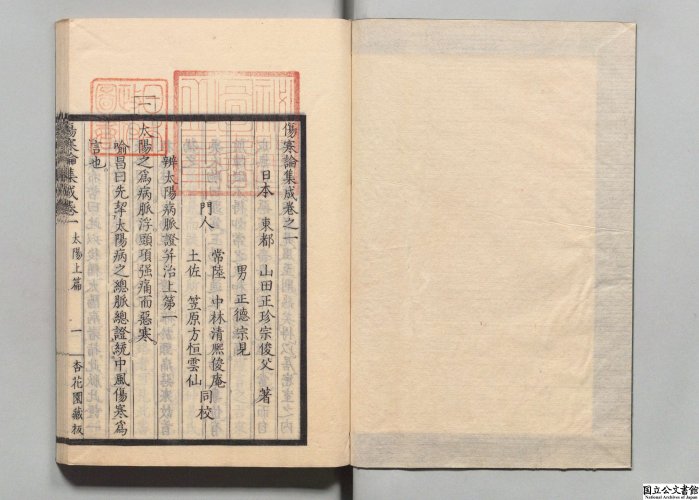 傷寒論集成卷之一
日本 東都 山田正珍宗俊父 著
男 正德宗見
門人 常陸 中林清熈俊庵
土佐 笠原方恒雲仙 同校
辨太陽病脈證并治上第一
太陽之爲病脈浮頭項强痛而惡寒
喩昌曰先挈太陽病之總脈總證統中風傷寒爲
言也
傷寒論集成卷一 太陽上篇 一 杏花園藏板
国立公文書館
National Archives of Japan